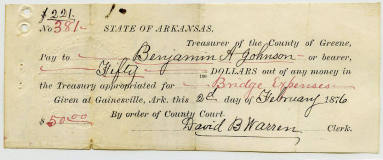 $221.
No 381- STATE OF ARKANSAS.
Treasurer of the County of Greene,
Pay to Benjamin A Johnson or bearer,
Fifty DOLLARS out of any money in
the Treasury appropriated for Bridge Expenses
Given at Gainesville, Ark. this 2d day of February 1876
By order of County Court.
$50.00 David B Warren Clerk.